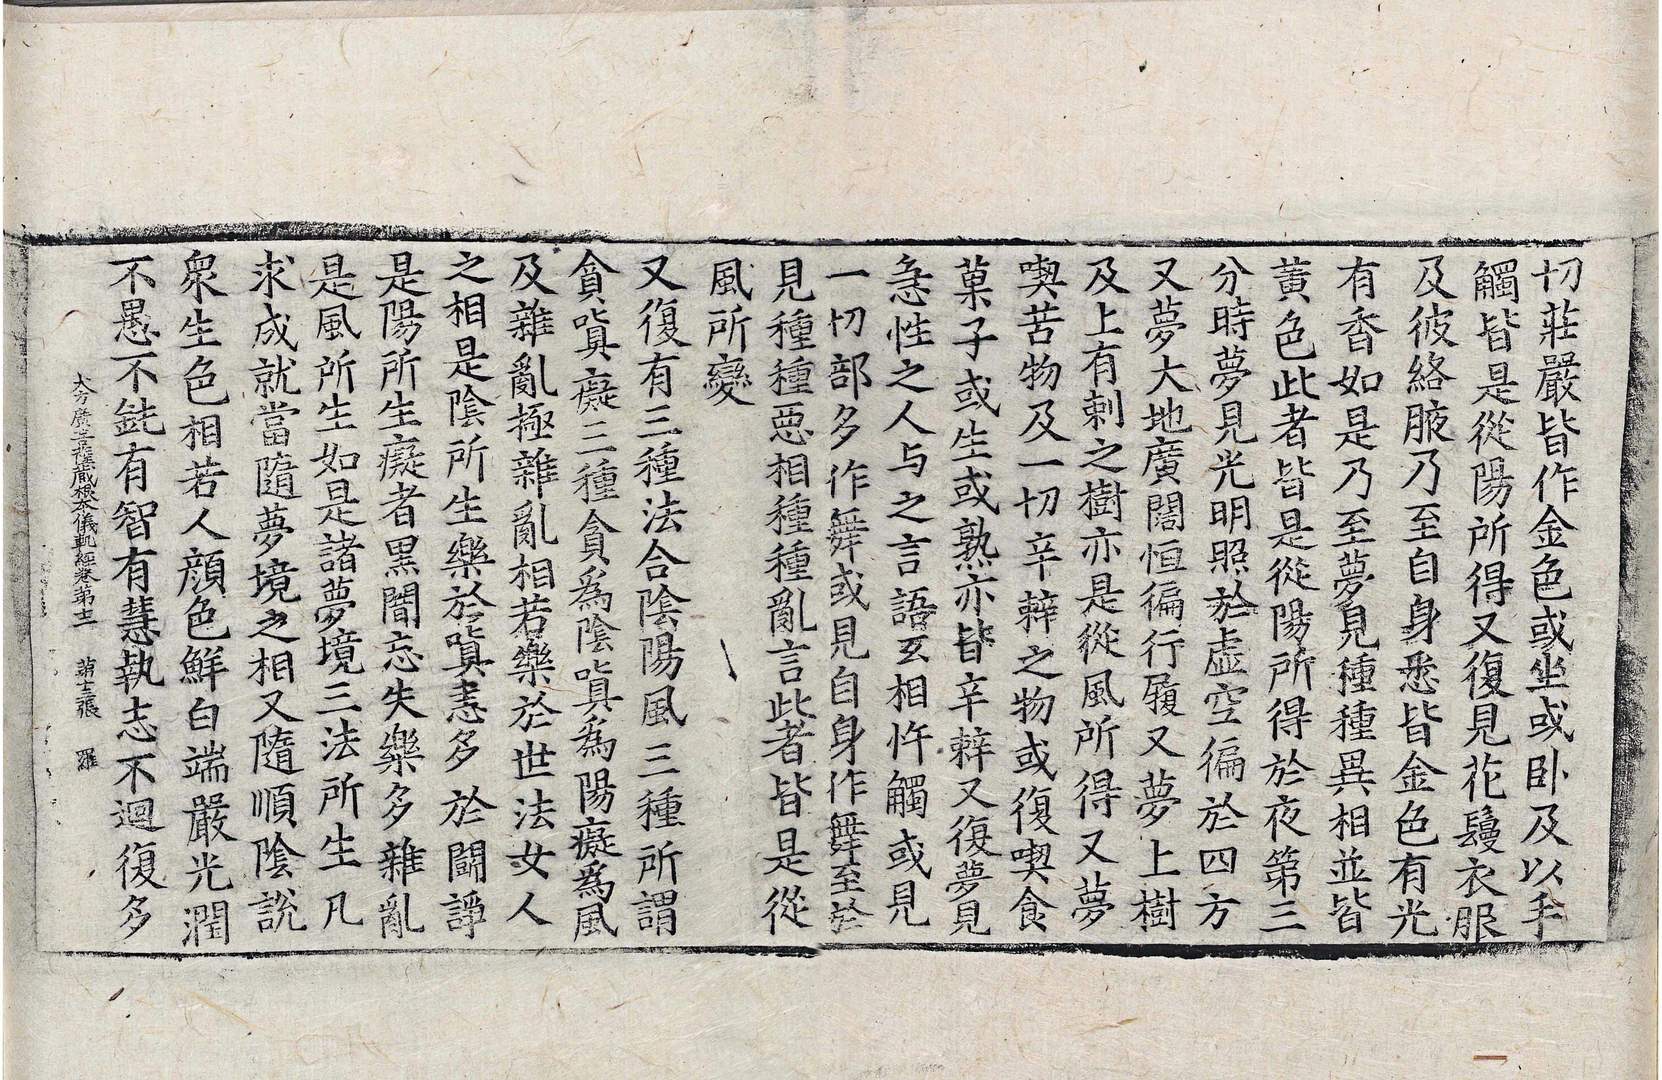 切莊嚴皆作金色或坐或卧及以手
觸皆是從陽所得又復見花鬘衣服
及彼絡腋乃至自身悉皆金色有光
有香如是乃至夢見種種異相並皆
黄色此者皆是從陽所得於夜第三
分時夢見光明照於虚空徧於四方
又夢大地廣闊恒徧行履又夢上樹
及上有刺之樹亦是從風所得又夢
喫苦物及一切辛辢之物或復喫食
菓子或生或熟亦皆辛辢又復夢見
急性之人与之言語互相忤觸或見
一切部多作舞或見自身作舞至於
見種種惡相種種亂言此者皆是從
風所變
又復有三種法合陰陽風三種所謂
貪嗔癡三種貪為陰嗔為陽癡為風
及雜亂極雜亂相若樂於世法女人
之相是陰所生樂於嗔恚多於鬪諍
是陽所生癡者黑闇忘失樂多雜亂
是風所生如是諸夢境三法所生凡
求成就當隨夢境之相又隨順陰說
衆生色相若人顔色鮮白端嚴光潤
不愚不鈍有智有慧執志不迴復多
大方廣菩薩藏根本儀軌經卷第十二 第十三張 羅